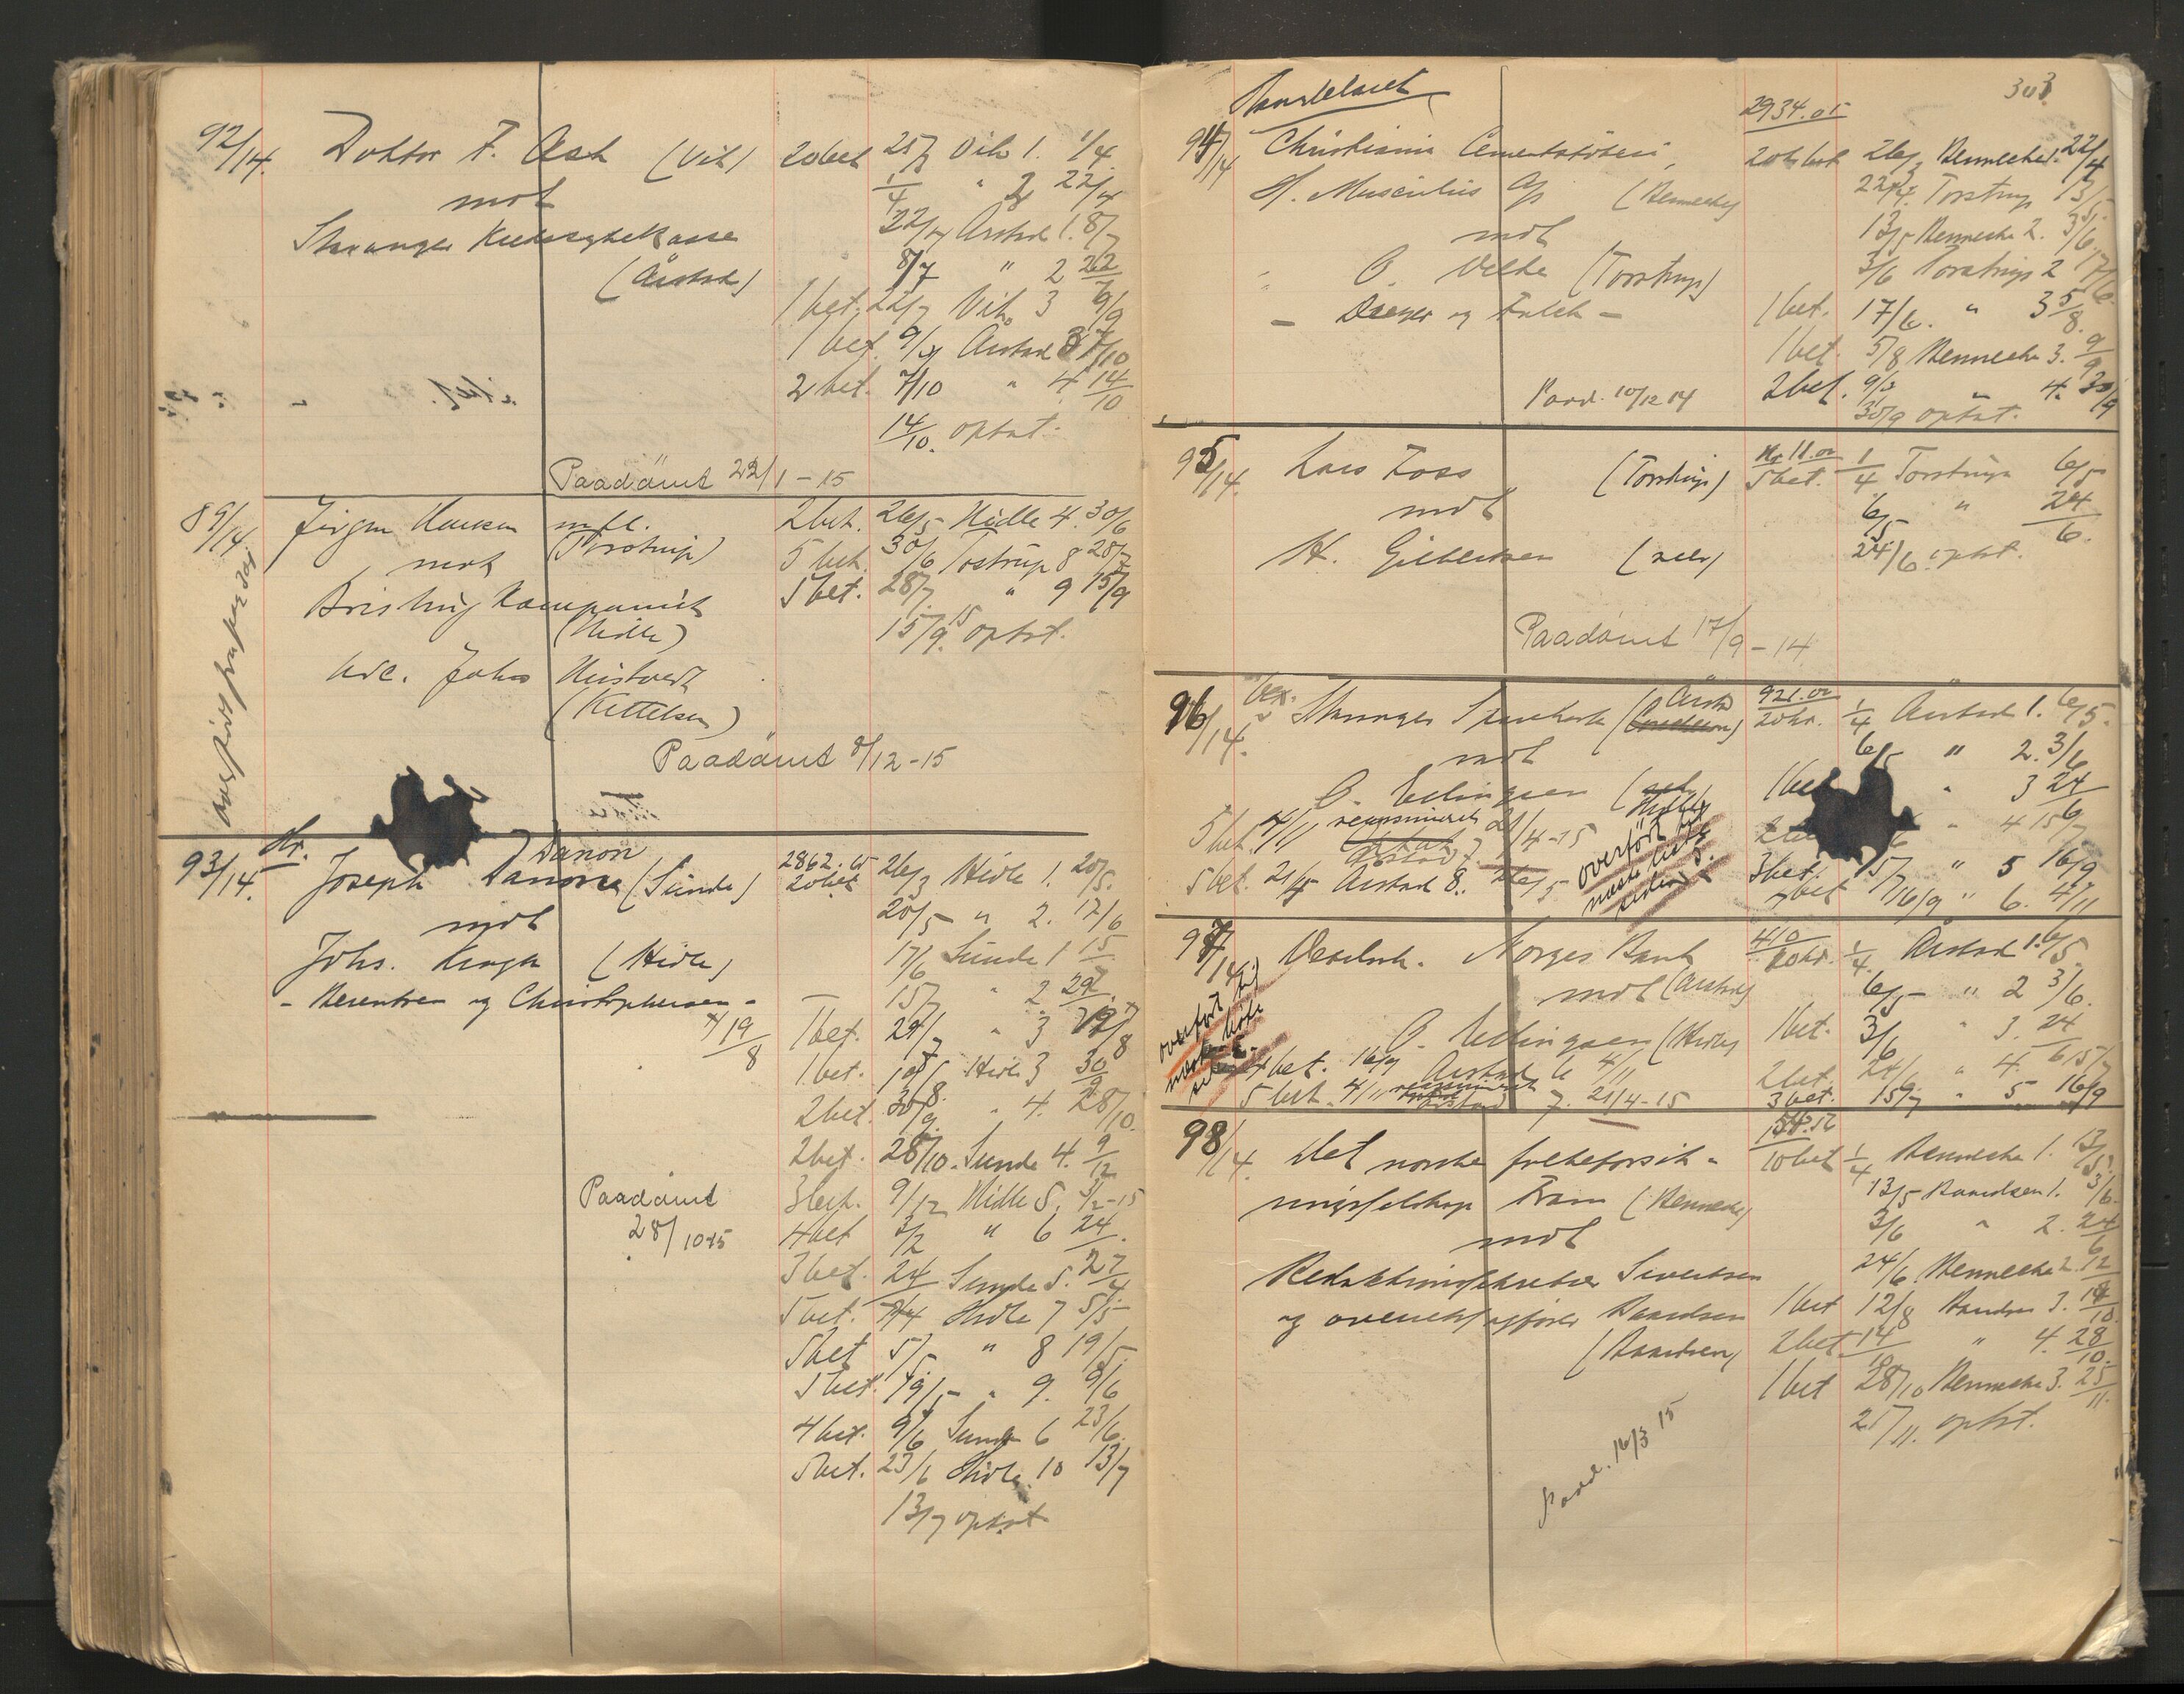 92/14. Doktor F. Ask (Vik) 20 bet 25/3 Vik 1. 1/4
mot 1/4 " 2 22/4
Stavanger Kredssykekasse 22/4 Aarstad 1. 8/7
(Aarstad) 8/7 " 2 22/7
1 bet. 22/7 Vik 3 9/9
1 bet. 9/9 Aarstad 3 7/10
2 bet. 7/10 " 4 14/10
14/10. optat.
Paadömt 22/1 - 15
89/14 Jörgen Hansen m.fl. 2 bet. 26/5 Hidle 4. 30/6
mot (Torstrup) 5 bet. 30/6 Tostrup 8 28/7
Brisling Kompaniet 5 bet. 28/7 " 9 15/9
(Hidle) 15/9 15 optat.
adc. Johs Kristvedt
(Kittelsen)
Paadömt 8/12 - 15
93/14. Hr. Joseph Danon (Sunde) 2862.65 20 bet 26/3 Hidle 1. 20/5.
Danon
mot 20/5 " 2. 17/6
Johs. Krogh (Hidle) 17/6 Sunde 1 15
- Berentsen og Christophersen - 15/7 " 2 29/7
19/8 1 bet. 29/7 " 3 19/8
1 bet. 19/8 Hidle 3 30/9
2 bet. 30/9 " 4. 28/10.
2 bet. 28/10. Sunde 4. 9/12
Paadömt 3 bet. 9/12 Hidle 5. 3/2 - 15
28/10 15 4 bet 3/2 " 6 24
3 bet. 24 Sunde 5. 27/4
5 bet. 27/4 Hidle 7 5/5
5 bet 5/5 " 8 19/5
5 bet. 19/5 " 9. 9/6
4 bet. 9/6 Sunde 6 23/6
5 bet. 23/6 Hidle 10 13/7
13/7 optat
303
Handelsret 2934.05
94/14 Christiania Cementstöberi, 20 bet 26/3 Bennecke 1. 22/4
H. Musculus A/s (Bennecke) 22/4. Torstrup 13/5
mot 13/5 Bennecke 2. 3/6
O. Velde (Torstrup) 3/6 Torstrup 2 17/6
- Dreyer og Falck - 1 bet. 17/6. " 3 5/8.
1 bet. 5/8 Bennecke 3. 9/9
Paad. 10/12 14 2 bet. 9/9 " 4. 30/9
30/9 optat.
95/14. Lars Foss (Torstrup) Kr 11.00 5 bet. 1/4 Torstrup 6/5
mot 6/5 " 24/6.
H. Gilbertsen (selv) 24/6. optat.
Paadömt 17/9 - 14
96/14. Vex. Stavanger Sparekasse (Aarsta) 921.00 20 kr. 1/4 Aarstad 1. 6/5.
mot 6/5 " 2. 3/6
O. Erlingsen (Hidle) 1 bet " 3 24/6
5 bet. 4/11 reassumeret Aarstad 7. 21/4 - 15 2 bet " 4 15/7
5 bet. 21/4 Aarstad 8. 26/5 overfört til næste hefte side 5. 3 bet. 15/7 " 5 16/9
7 bet 16/9 " 6. 4/11
97/14 Vexelsak. Norges Bank 410 20 kr. 1/4. Aarstad 1. 6/5.
mot (Aarstad) 6/5 " 2 3/6.
O. Erlingsen (Hidle) 1 bet. 3/6 " 3. 24/6
overfört til næste hefte side
4 bet. 16/9 Aarstad 6 4/11 2 bet. 24/6 " 4. 15/7
5 bet. 4/11 reassumeret Aarstad 7. 21/4 - 15 3 bet. 15/7 " 5. 16/9
98/14. Det norske folkeforsik- 10 bet 1/4 Bennecke 1. 13/5.
ringsselskap Fram (Bennecke) 13/5 Baardsen 1. 3/6.
mot 3/6 " 2. 24/6
Redaktionssekretær Sivertsen 24/6 Bennecke 2. 12/8
og overretssakförer Baardsen 1 bet 12/8 Baardsen 3. 14/10
(Baardsen) 2 bet. 14/10 " 4. 28/10.
1 bet 28/10 Bennecke 3. 25/11.
Paad. 16/3 15 25/11. optat.